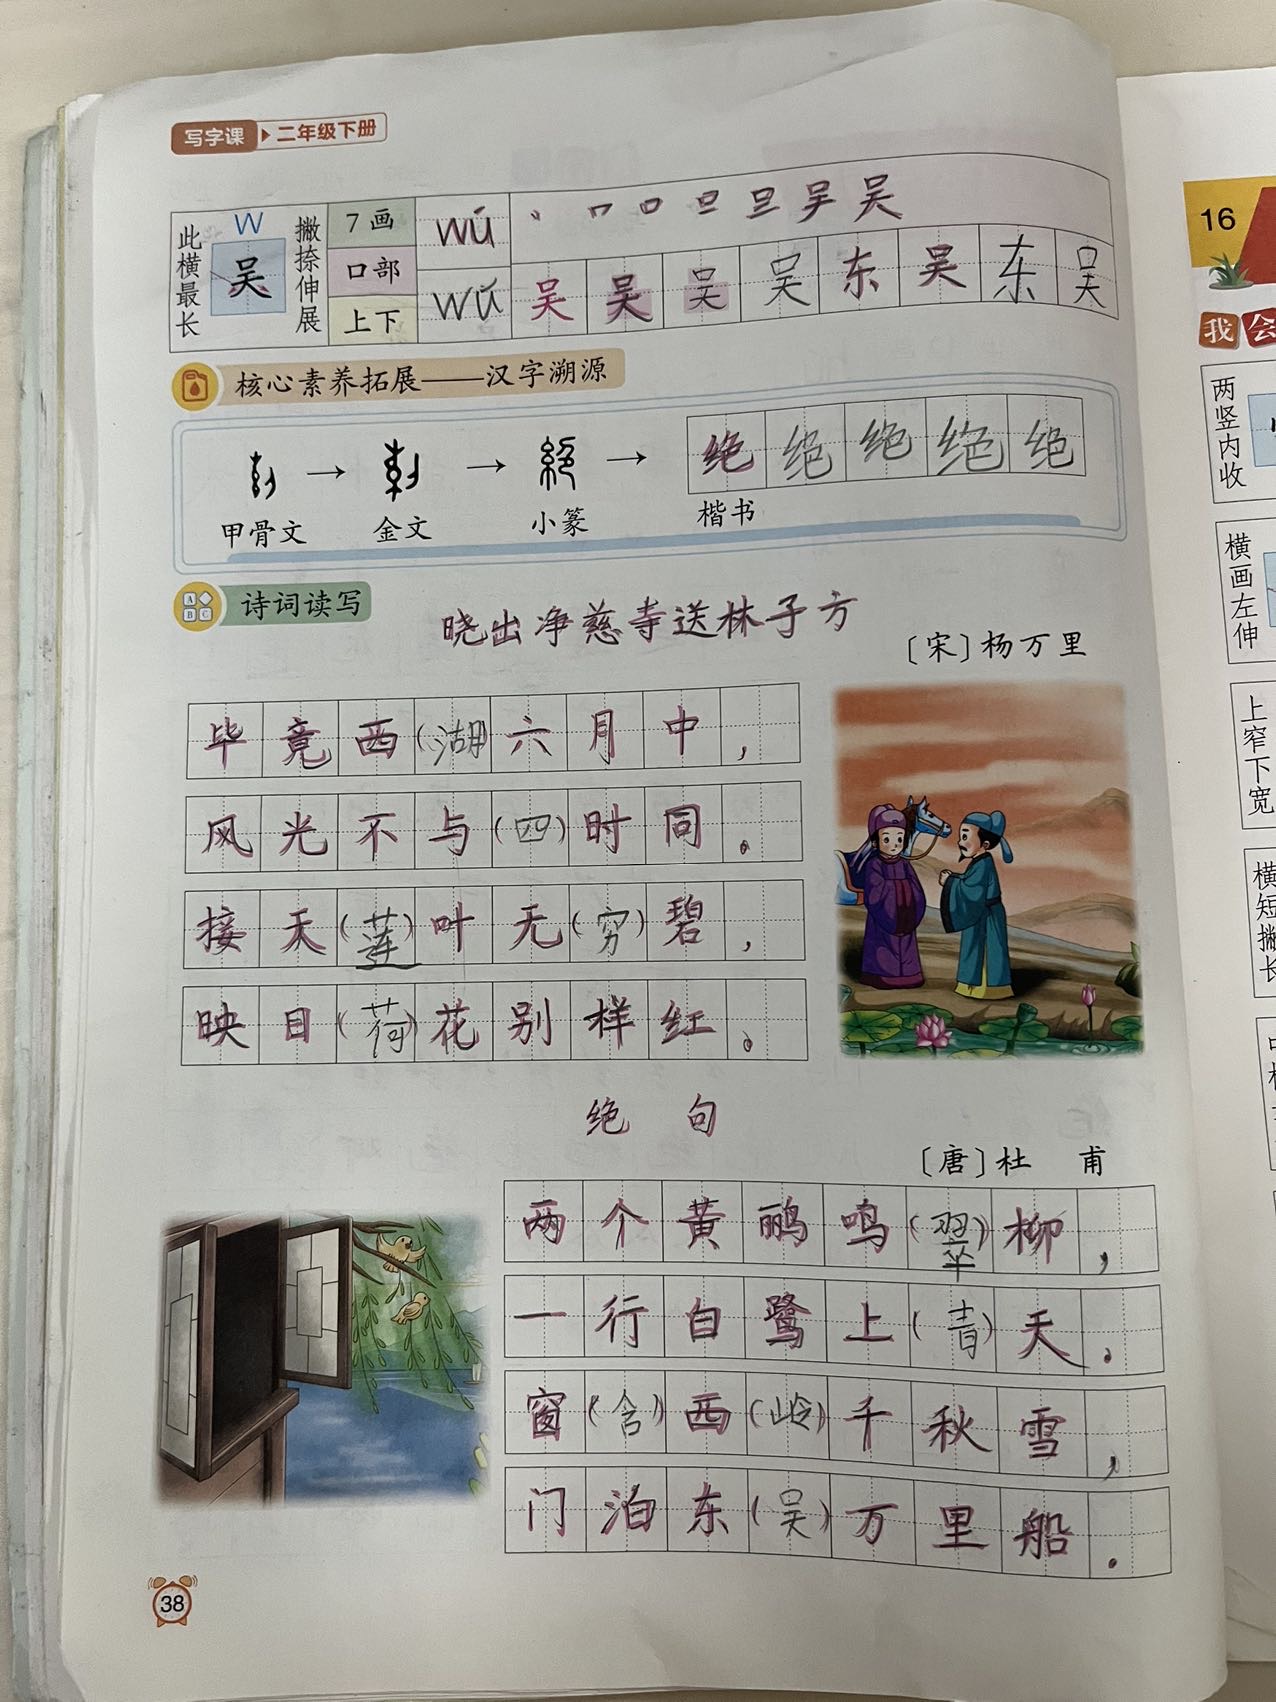 写字课 二年级下册
此横最长 W 吴 撇捺伸展 7画 口部 上下 wú wú
丶 𠃍 口 旦 旦 吴 吴
吴 吴 吴 吴 东 吴 东 吴
核心素养拓展——汉字溯源
甲骨文 → 金文 → 小篆 → 楷书
绝 绝 绝 绝 绝
诗词读写
晓出净慈寺送林子方
〔宋〕杨万里
毕竟西(湖)六月中，
风光不与(四)时同。
接天(莲)叶无(穷)碧，
映日(荷)花别样红。
绝 句
〔唐〕杜 甫
两个黄鹂鸣(翠)柳，
一行白鹭上(青)天。
窗(含)西(岭)千秋雪，
门泊东(吴)万里船。
38
16
我 会
两竖内收
横画左伸
上窄下宽
横短撇长